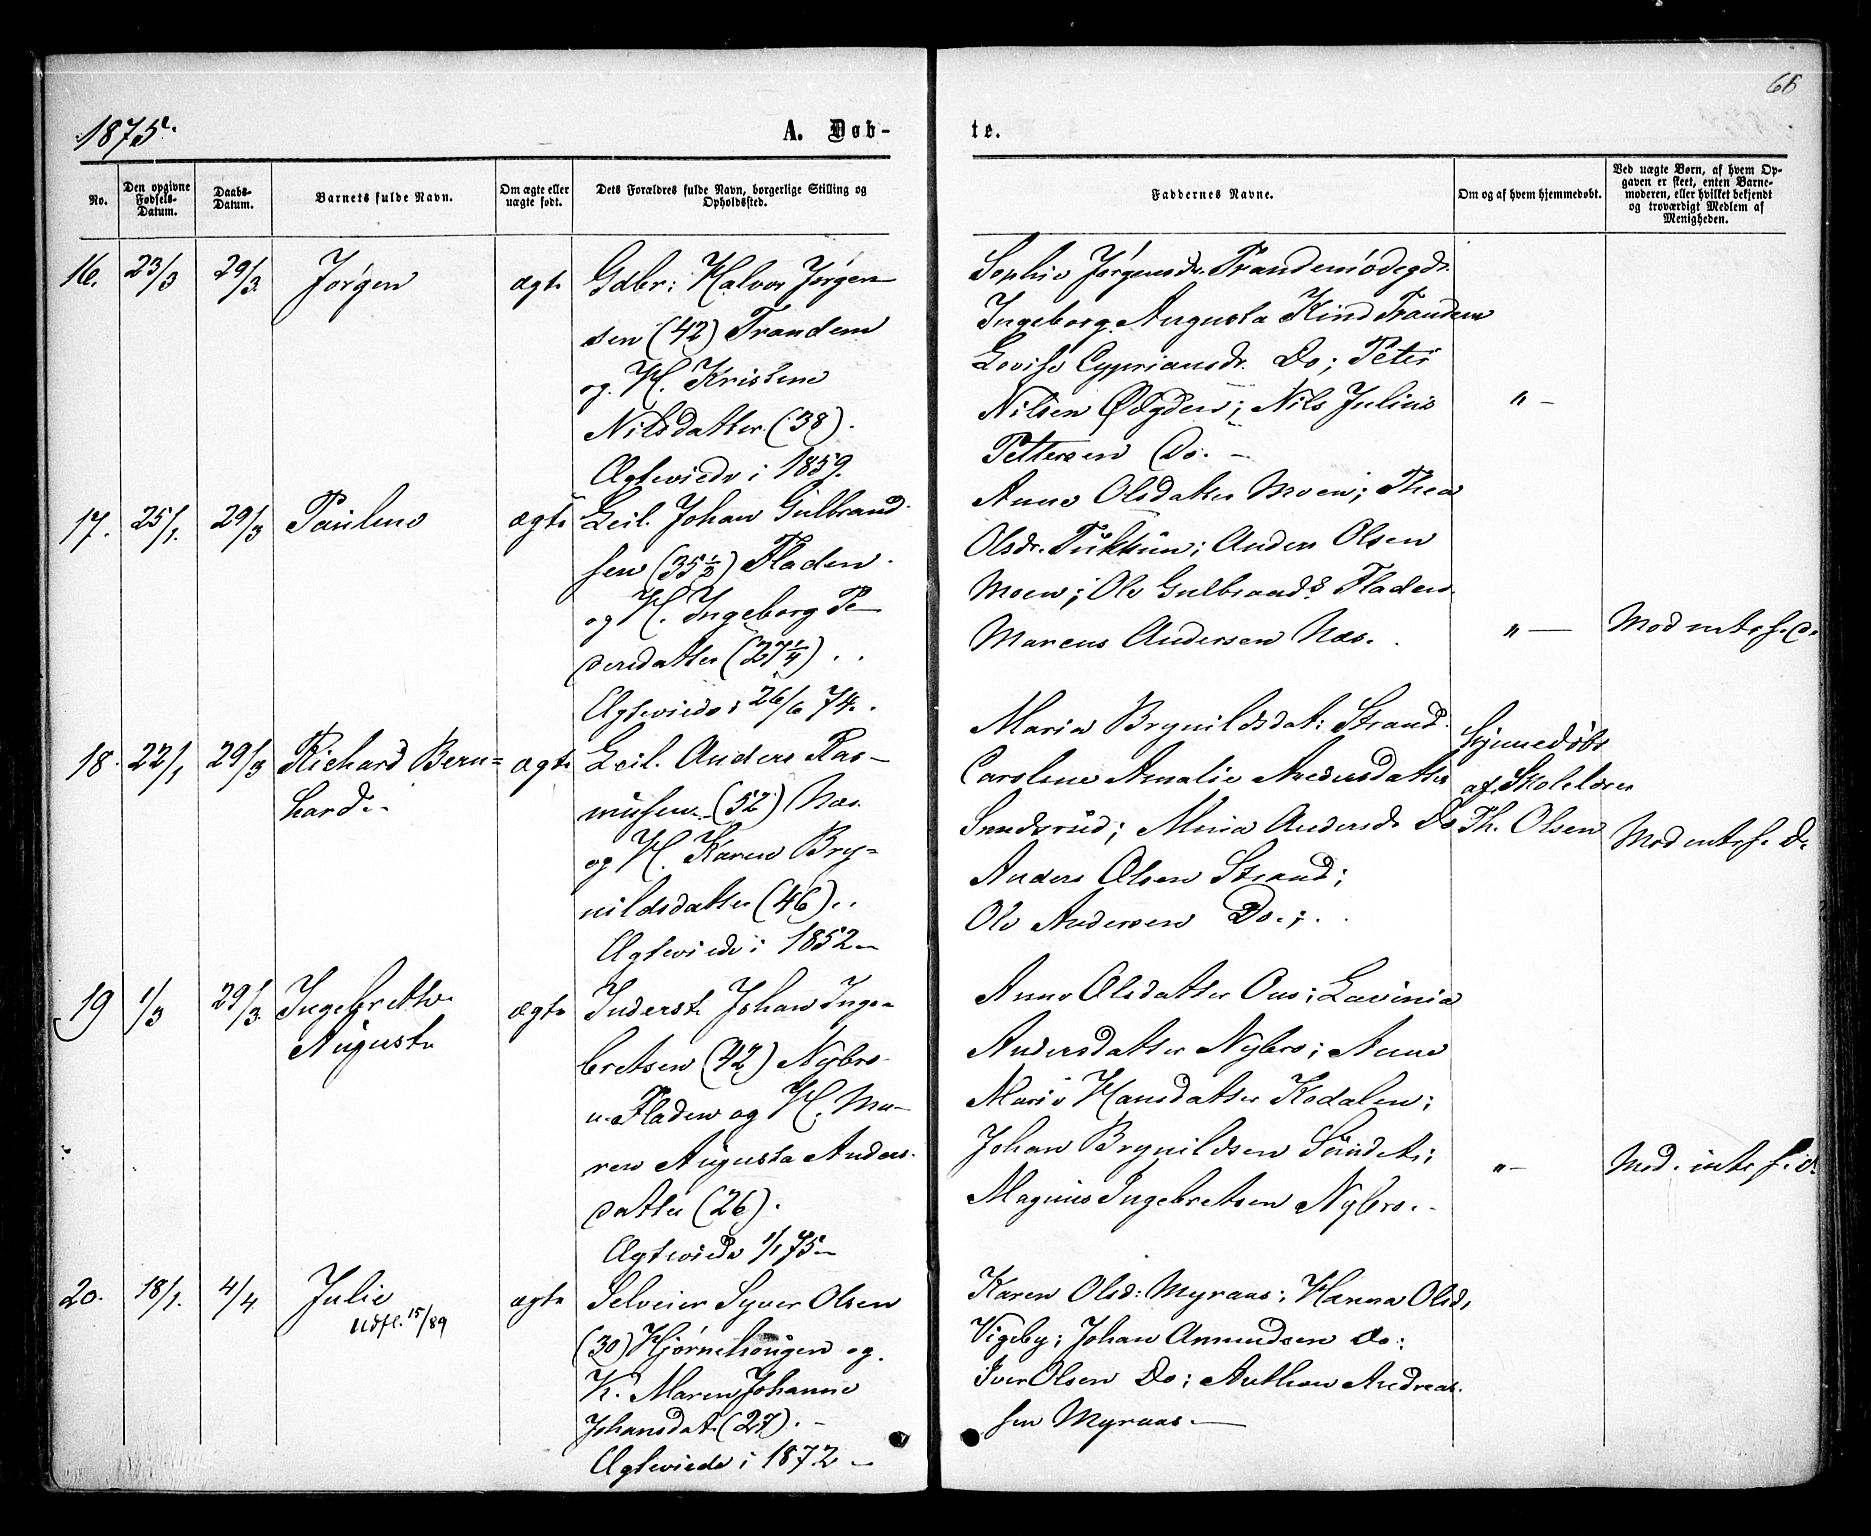 66
1875.
A. Døb-
te.
No.
Den opgivne Fødsels-Datum.
Daabs-Datum.
Barnets fulde Navn.
Om ægte eller uægte født.
Dets Forældres fulde Navn, borgerlige Stilling og Opholdssted.
Faddernes Navne.
Om og af hvem hjemmedøbt.
Ved uægte Børn, af hvem Op-
gaven er skeet, enten Barne-
moderen, eller hvilket bekjendt
og troværdigt Medlem af
Menigheden.
16. 23/3 29/3 Jørgen ægte
Gdbr: Halvor Jørgen-
sen (42) Trandem
og H. Kristine
Nilsdatter (38).
Ægteviede i 1859.
Sophie Jørgensdr. Trandemødegd.
Ingeborg Augusta Kind Trandem
Lovise Cypriansdr. Do; Peter
Nilsen Ødgden; Nils Julius
Pettersen Do. -
" -
17. 25/1. 29/3 Pauline ægte
Leil. Johan Gulbrand-
sen (35½) Fladen
og H. Ingeborg Pe-
dersdatter (27¼) . .
Ægteviede 26/6 74.
Anne Olsdatter Moen; Thea
Olsdr. ; Anders Olsen
Moen; Ole Gulbrands. Fladen.
Marcus Andersen Næs.
" -
Mod
18. 22/1 29/3 Richard Bern-
hard.- ægte
Leil. Anders Ras-
mussen (52) Næs.
og H. Karen Bry-
nildsdatter (46)..
Ægteviede i 1852-
Maria Brynildsdat: Strand.
Caroline Amalie Andersdatter
Sundsrud; Mina Andersd. Do
Anders Olsen Strand;
Ole Andersen Do.;.
Hjemmedøbt
af Skolelærer
Th. Olsen
Mod
19 1/3 29/3. Ingebrette
Auguste ægte
Inderst. Johan Inge-
bretsen (42) Nybro
u. Fladen og H. Ma-
ren Augusta Anders-
datter (26).
Ægteviede 1/1 75-
Anne Olsdatter Aas; Lavinia
Andersdatter Nybro; Anne
Marie Hansdatter Kodalen;
Johan Brynildsen Sundet;
Magnus Ingebretsen Nybro.-
"-
Mod.
20. 18/1. 4/4. Julie
Udfl. 15/89 ægte
Selveier Syver Olsen
(30) Hjørnehougen og.
K. Maren Johanne
Johansdat. (27). -
Ægteviede i 1872-
Karen Olsd: Myraas; Hanna Olsd.
Vigeby; Johan Amundsen Do:
Iver Olsen Do; Anthon Andreas-
sen Myraas.-